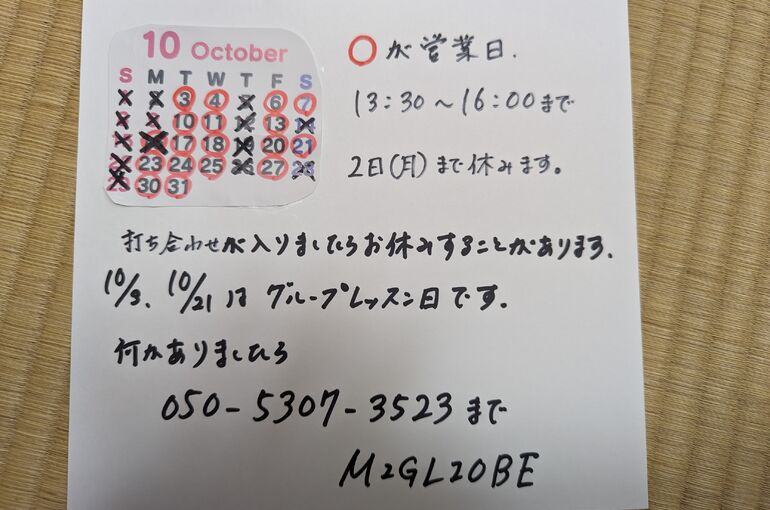 10 October
S M T W T F S
3 4 6 7
10 11 12 13 14
17 18 19 20 21
23 24 25 26 27 28
30 31
○が営業日.
13:30~16:00まで
2日(月)まで休みます。
打ち合わせが入りましたらお休みすることがあります.
10/3、10/21は グループレッスン日です.
何かありましたら
050-5307-3523まで
M2GL20BE